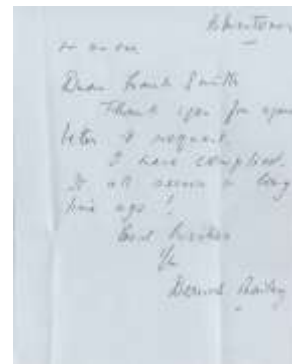 Dear Frank Smith
Thank you for your
letter & request.
I have complied.
It all seems a long
time ago!
Good wishes
Bernard